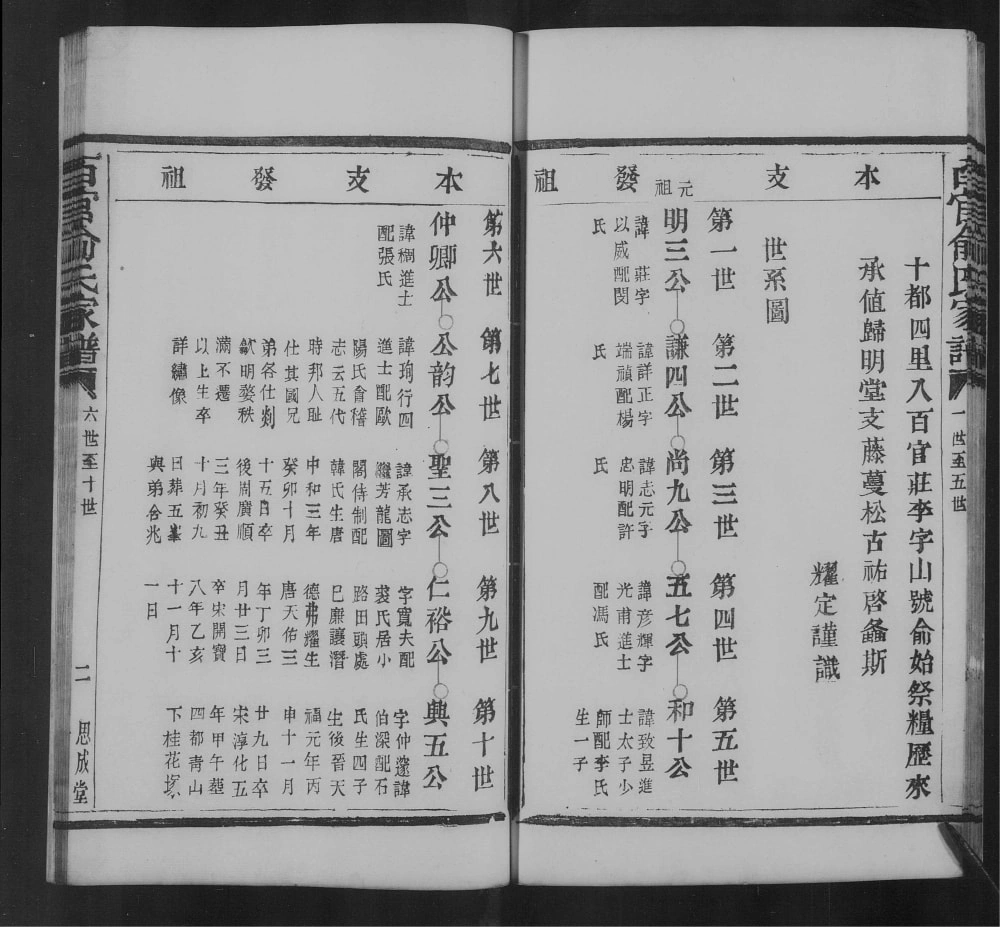 本支發祖
十都四里入百官莊李字山號俞始祭糧歷來
承值歸明堂支藤蔓松古祐啓螽斯
耀定謹識
世系圖
第一世
元祖
明三公
諱莊字
以威配閔
氏
第二世
謙四公
諱詳正字
端禎配楊
氏
第三世
尚九公
諱志元子
忠明配許
氏
第四世
五七公
諱彥輝字
光甫進士
配馮氏
第五世
和十公
諱致昱進
士太子少
師配李氏
生一子
一世至五世
本支發祖
第六世
仲卿公
諱稠進士
配張氏
第七世
公韵公
諱珣行四
進士配歐
陽氏會稽
志云五代
時邦人耻
仕其國兄
弟各仕剡
歙明婺秩
滿不遷
以上生卒
詳繡像
第八世
聖三公
諱承志字
繼芳龍圖
閣侍制配
韓氏生唐
中和三年
癸卯十月
十五日卒
後周廣順
三年癸丑
十月初九
日葬五峯
與弟合兆
第九世
仁裕公
字寬夫配
裘氏居小
路田頭處
巳廉讓潛
德弗耀生
唐天佑三
年丁卯三
月廿三日
卒宋開寶
八年乙亥
十一月十
一日
第十世
興五公
字仲邃諱
伯深配石
氏生四子
生後晉天
福元年丙
申十一月
廿九日卒
宋淳化五
年甲午葬
四都青山
下桂花塚
百官俞氏家譜
六世至十世
二
思成堂